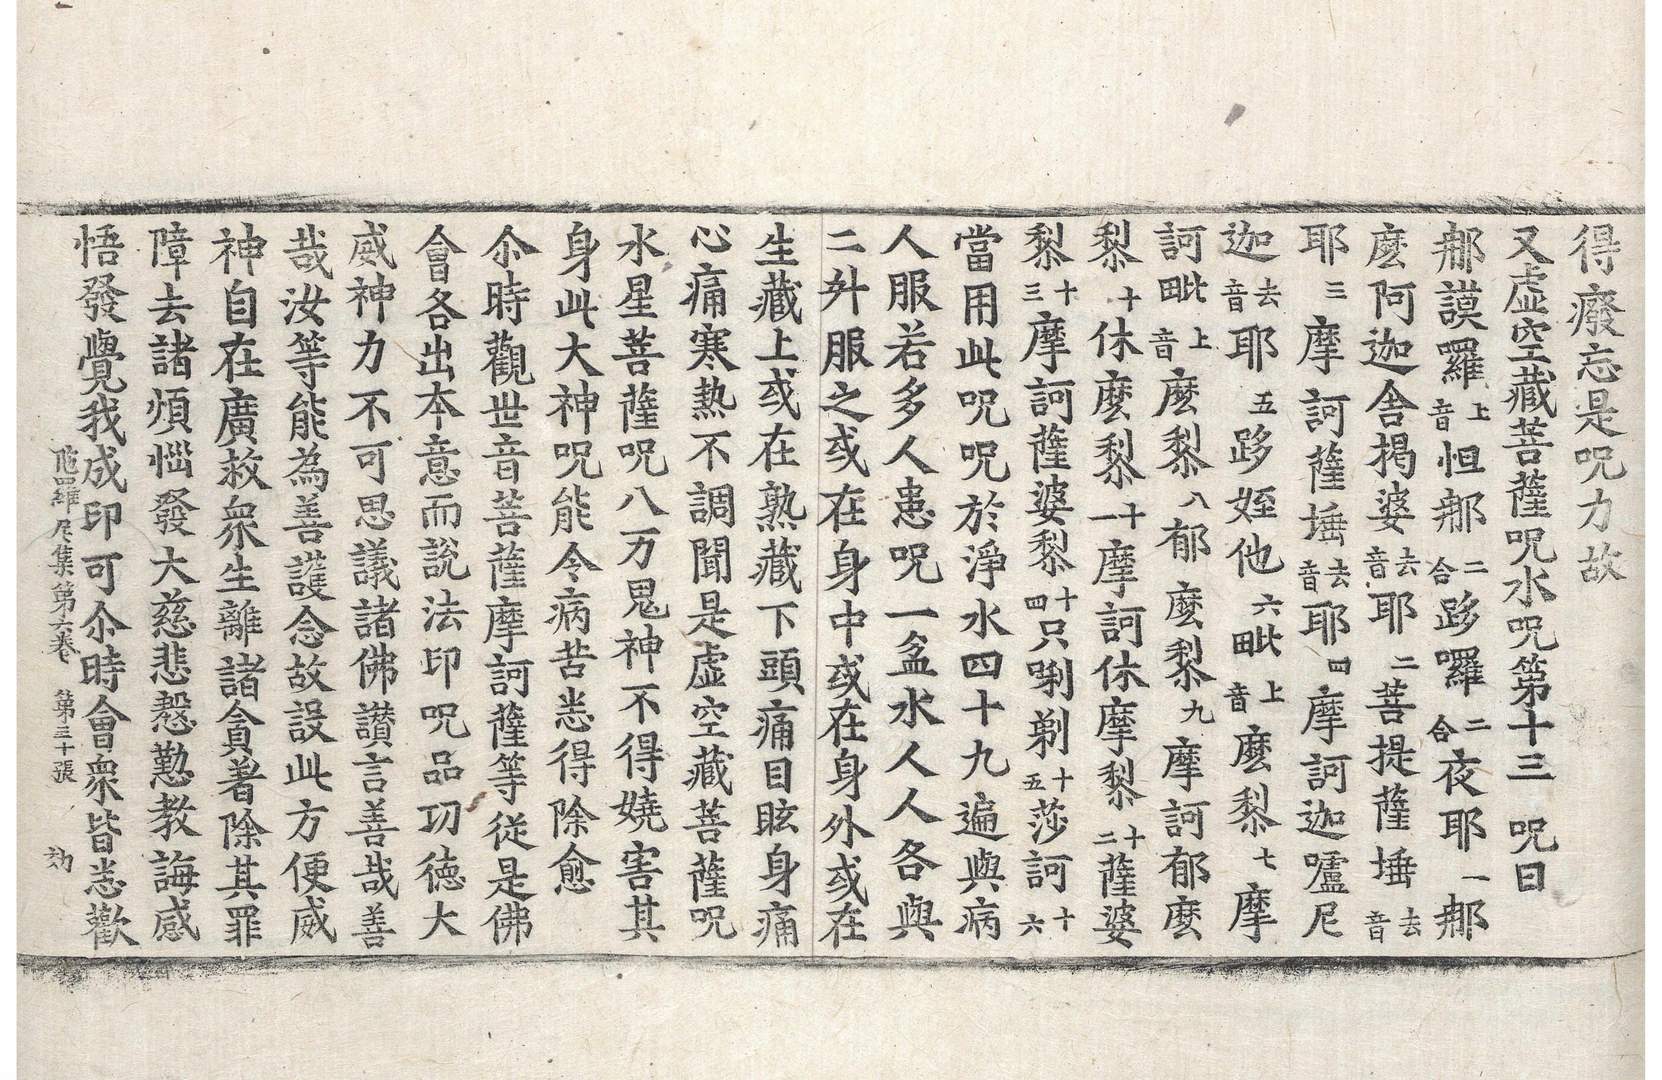 得癈忘是呪力故
又虛空藏菩薩呪水呪第十三 呪曰
那謨羅上音怛那二合跢囉二合夜耶一那
麼阿迦舍揭婆去音耶二菩提薩埵去音
耶三摩訶薩埵去音耶四摩訶迦嚧尼
迦去音耶五跢姪他六毗上音麼黎七摩
訶毗上音麼黎八郁麼黎九摩訶郁麼
黎十休麼黎十一摩訶休摩黎十二薩婆
黎十三摩訶薩婆黎十四只唎剃十五莎訶十六
當用此呪呪於淨水四十九遍與病
人服若多人患呪一盆水人人各與
二升服之或在身中或在身外或在
生藏上或在熟藏下頭痛目眩身痛
心痛寒熱不調聞是虛空藏菩薩呪
水星菩薩呪八万鬼神不得嬈害其
身此大神呪能令病苦悉得除愈
尒時觀世音菩薩摩訶薩等從是佛
會各出本意而說法印呪品功德大
威神力不可思議諸佛讚言善哉善
哉汝等能為善護念故設此方便威
神自在廣救衆生離諸貪著除其罪
障去諸煩惱發大慈悲慇懃教誨感
悟發覺我成印可尒時會衆皆悉歡
陁羅尼集第六卷 第三十張 刼